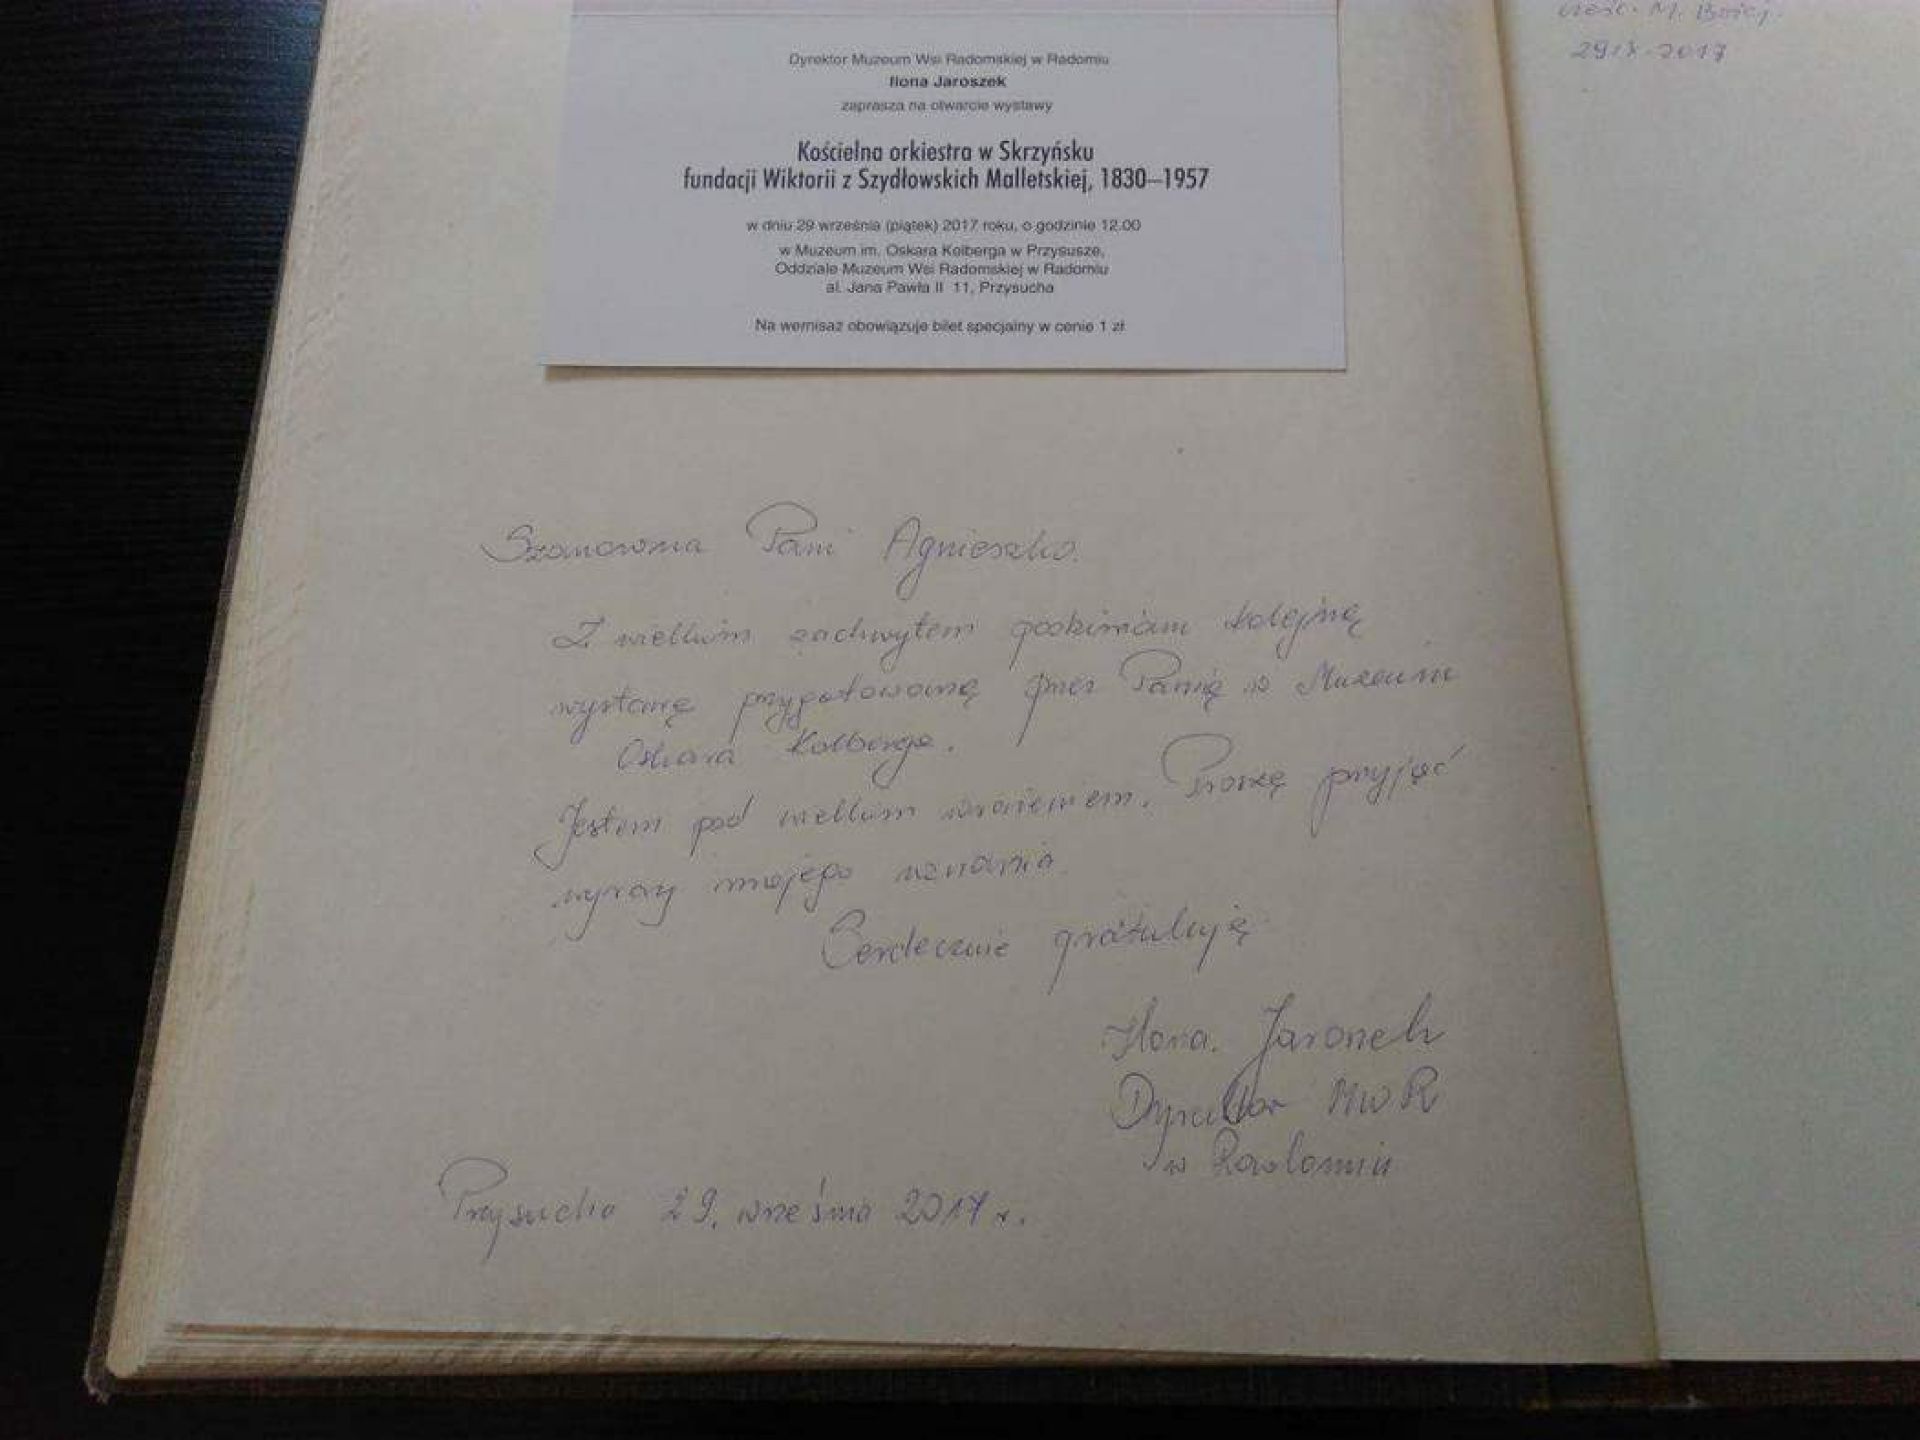 Dyrektor Muzeum Wsi Radomskiej w Radomiu
Ilona Jaroszek
zaprasza na otwarcie wystawy
Kościelna orkiestra w Skrzyńsku
fundacji Wiktorii z Szydłowskich Malletskiej, 1830–1957
w dniu 29 września (piątek) 2017 roku, o godzinie 12.00
w Muzeum im. Oskara Kolberga w Przysusze,
Oddziale Muzeum Wsi Radomskiej w Radomiu
al. Jana Pawła II 11, Przysucha
Na wernisaż obowiązuje bilet specjalny w cenie 1 zł
Szanowna Pani Agnieszko.
Z wielkim zachwytem podziwiam kolejną
wystawę przygotowaną przez Panią w Muzeum
Oskara Kolberga.
Jestem pod wielkim wrażeniem. Proszę przyjąć
wyrazy mojego uznania.
Serdecznie gratuluję
Ilona Jaroszek
Dyrektor MWR
w Radomiu
Przysucha 29. września 2017 r.
M. Bożej.
29.IX.2017